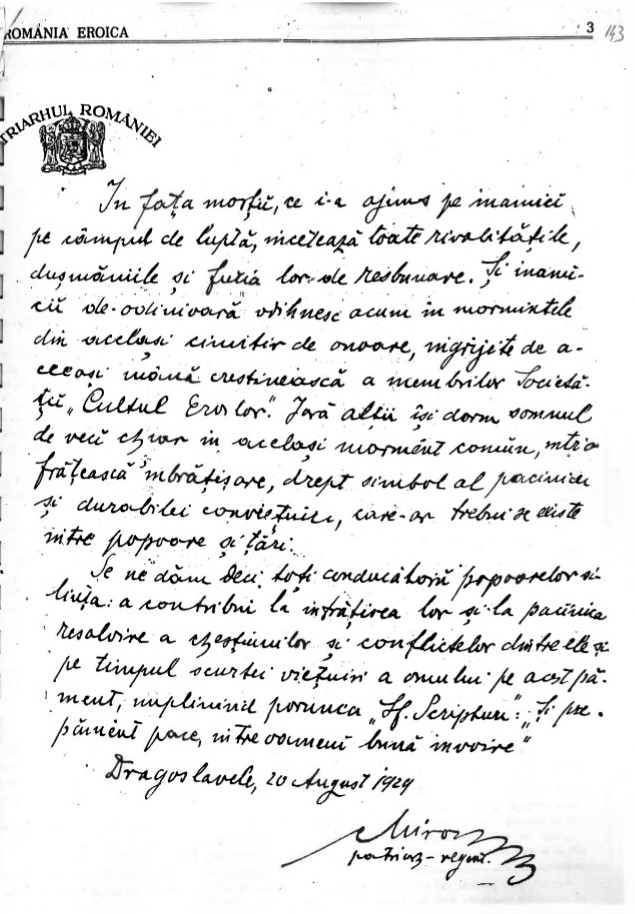 ROMÂNIA EROICA 3 143
TRIARHUL ROMÂNIEI
În fața morții, ce i-a ajuns pe inamici
pe câmpul de luptă, incetează toate rivalitățile,
dușmăniile și furia lor de resbunare. Și inami-
cii de-odinioară odihnesc acum in mormintele
din același cimitir de onoare, ingrijete de a-
ceeași mână creștinească a membrilor Societă-
ții „Cultul Eroilor". Iară alții își dorm somnul
de veci chiar in același mormênt comun, intr'o
frățească imbrățișare, drept simbol al pacinicei
și durabilei conviețuiri, care-ar trebui se existe
intre popoare și țări.
Se ne dăm deci toți conducătorii popoarelor si-
lința: a contribui la infrățirea lor și la pacinica
resolvire a chestiunilor și conflictelor dintre ele și
pe timpul scurtei viețuiri a omului pe acest pă-
mênt, implinind porunca „Sf. Scripturi": „Și pre
pămênt pace, intre oameni bună invoire"
Dragoslavele, 20 August 1929
Miron
patriarh-regent.